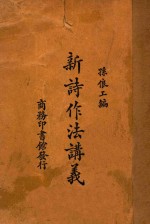 孫俍工編
新詩作法講義
商務印書館發行